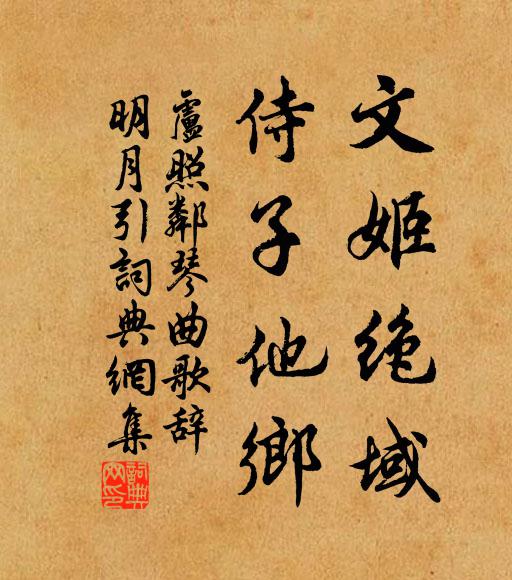 文姬絶域
侍子他鄉
盧照鄰琴曲歌辞
明月引詞典網集
詞典网印